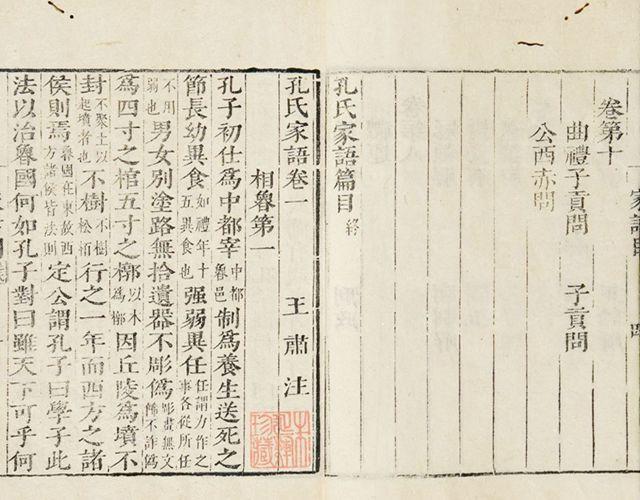 卷第十
曲禮子貢問　子貢問
公西赤問
孔氏家語篇目 終
孔氏家語卷一
相魯第一　王肅注
孔子初仕爲中都宰中都魯邑制爲養生送死之
節長幼異食如禮年十五異食也强弱異任任謂力作之事各從所任
不用弱也男女別塗路無拾遺器不彫僞彫畫無文飾不詐僞
爲四寸之棺五寸之槨以木爲槨因丘陵爲墳不
封不聚土以起墳者也不樹不樹松栢行之一年而西方之諸
侯則焉魯國在東故西方諸侯皆法則定公謂孔子曰學子此
法以治魯國何如孔子對曰雖天下可乎何
珍藏